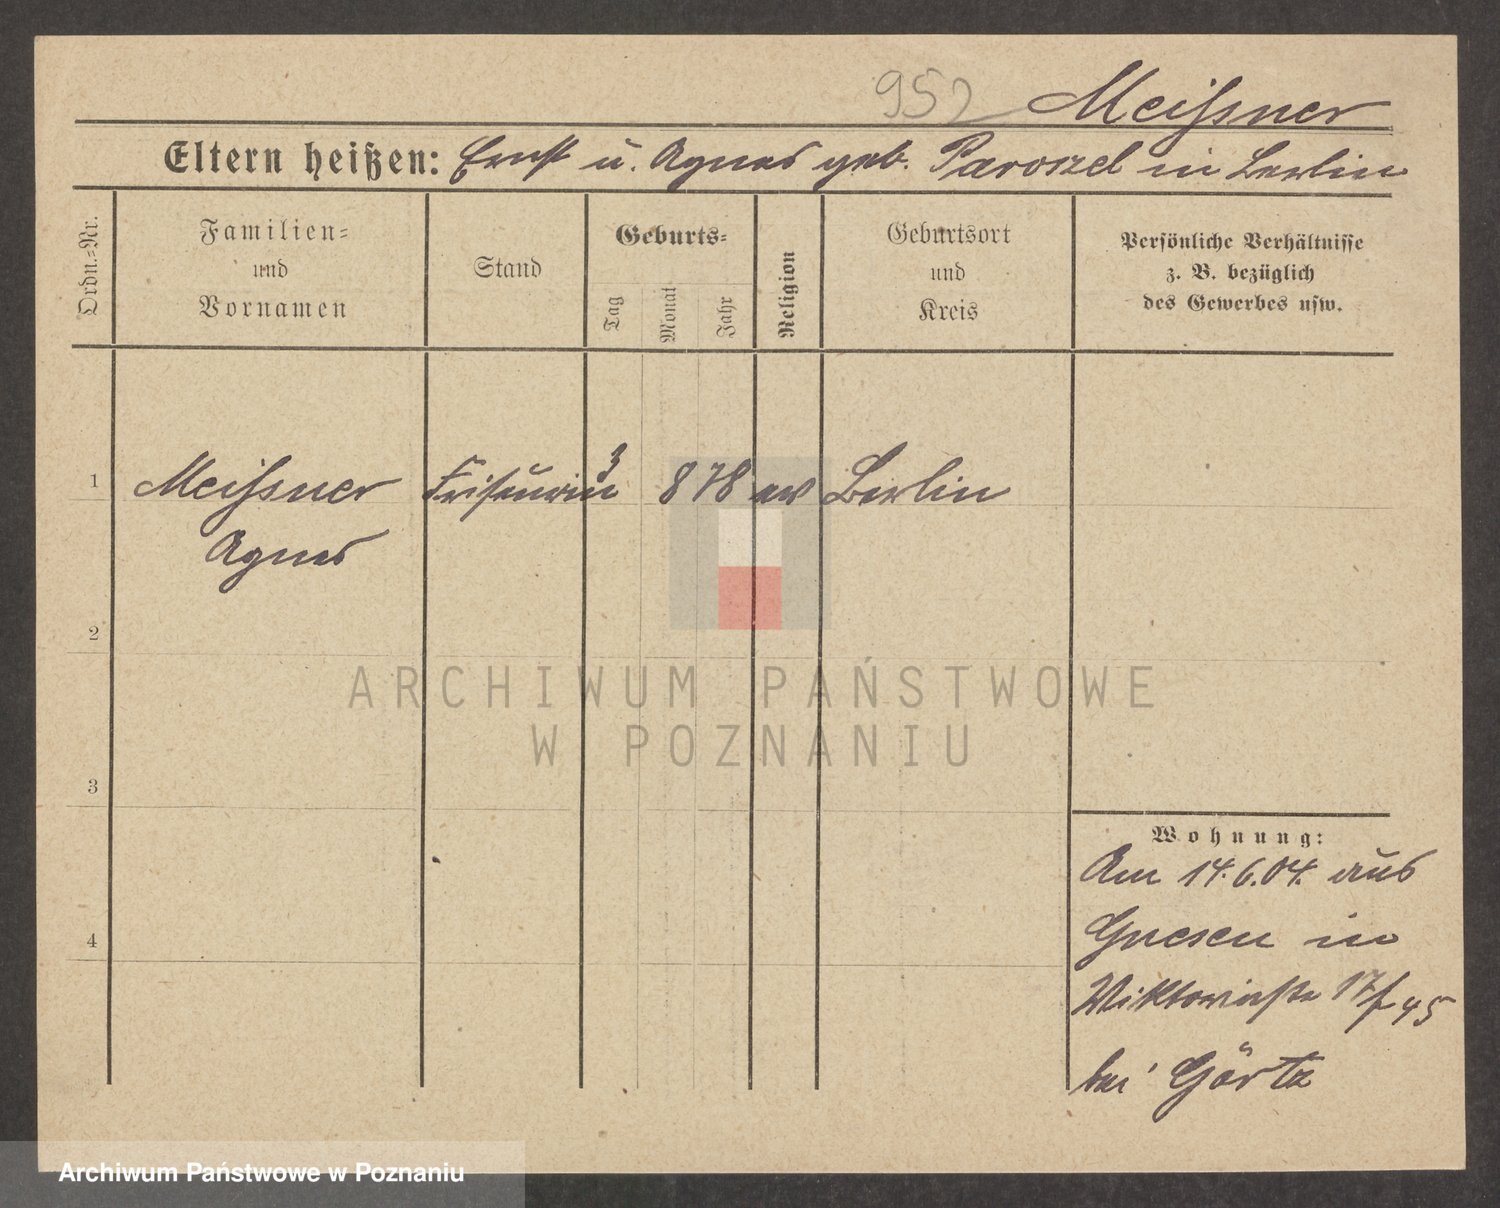 952 Meißner
Eltern heißen: Ernst u. Agnes geb. Paroszel in Berlin
Ordn.-Nr.
Familien-
und
Vornamen
Stand
Geburts-
Tag
Monat
Jahr
Religion
Geburtsort
und
Kreis
Persönliche Verhältnisse
z. B. bezüglich
des Gewerbes usw.
1 Meißner Friseurin 3 8 78 ev Berlin
Agnes
2
ARCHIWUM PAŃSTWOWE
W POZNANIU
3
4
Wohnung:
Am 14.6.04. aus
Gnesen in
Wiktoriastr 17 f 45
bei Görtz
Archiwum Państwowe w Poznaniu